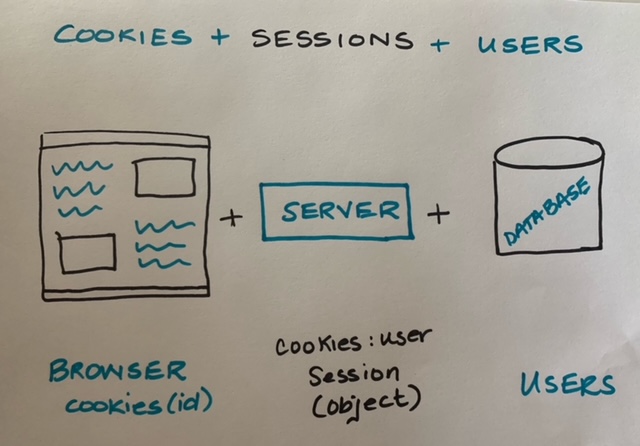 COOKIES + SESSIONS + USERS
+ SERVER + DATABASE
BROWSER
cookies(id)
cookies: user
Session
(object)
USERS